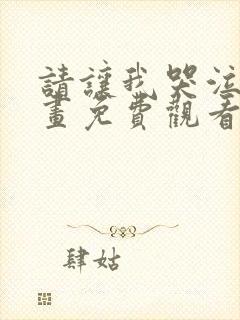 請讓我哭泣
畫免費觀看
肆姑